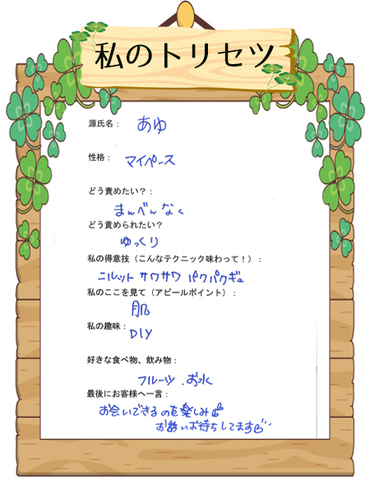 私のトリセツ
源氏名： あゆ
性格： マイペース
どう責めたい？：
まんべんなく
どう責められたい？：
ゆっくり
私の得意技（こんなテクニック味わって！）：
ニルット サワサワ パクパクギュ
私のここを見て（アピールポイント）：
肌
私の趣味： DIY
好きな食べ物、飲み物：
フルーツ．お水
最後にお客様へ一言：
お会いできるのを楽しみ
お待ちしてます